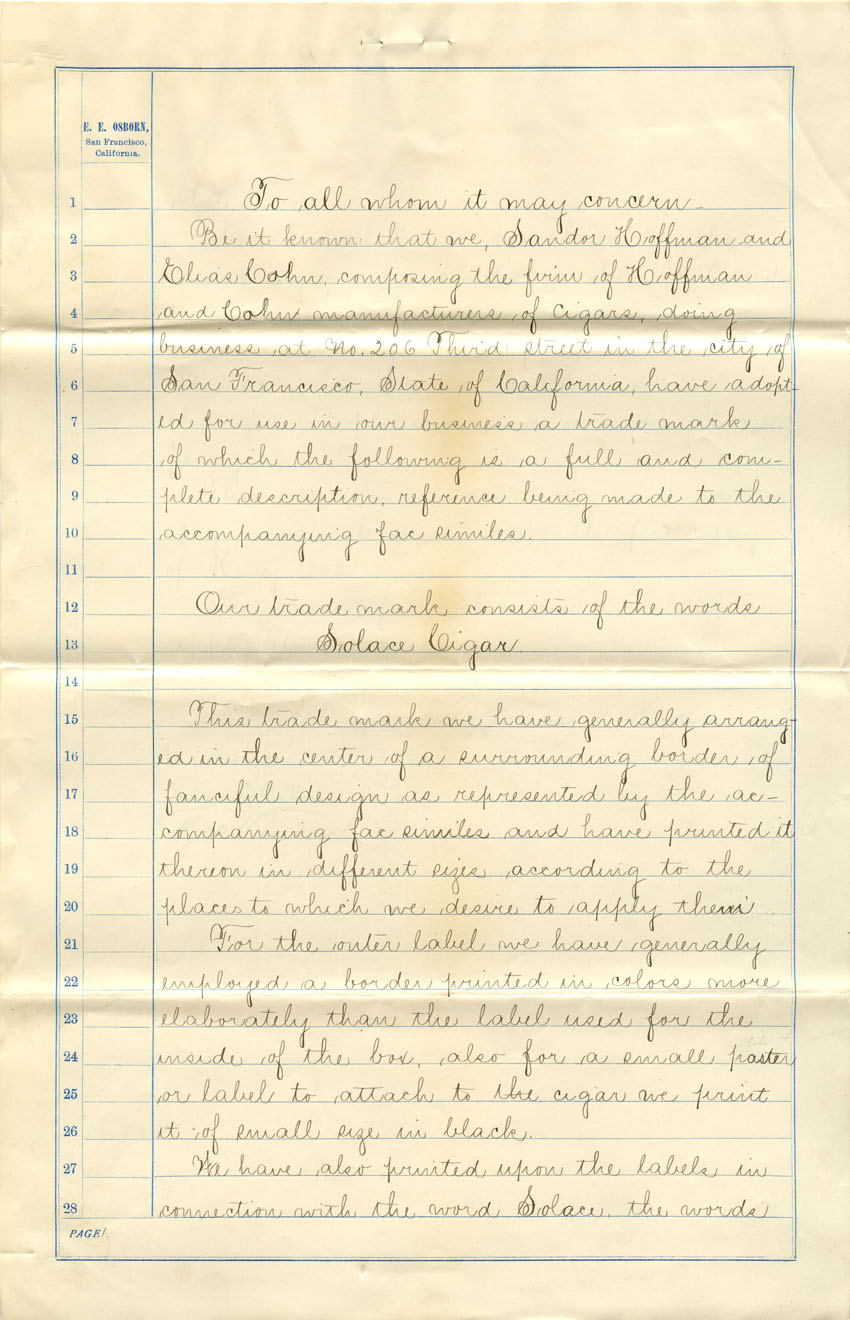 E. E. OSBORN,
San Francisco,
California.
1 To all whom it may concern
2 Be it known that we, Sandor Hoffman and
3 Elias Cohn, composing the firm of Hoffman
4 and Cohn manufacturers of Cigars, doing
5 business at No. 206 Third street in the city of
6 San Francisco, State of California, have adopt-
7 ed for use in our business a trade mark
8 of which the following is a full and com-
9 plete description, reference being made to the
10 accompanying fac similes.
11
12 Our trade mark consists of the words
13 Solace Cigar.
14
15 This trade mark we have generally arrang-
16 ed in the center of a surrounding border of
17 fanciful design as represented by the ac-
18 companying fac similes and have printed it
19 thereon in different sizes according to the
20 places to which we desire to apply them.
21 For the outer label we have generally
22 employed a border printed in colors more
23 elaborately than the label used for the
24 inside of the box, also for a small paster
25 or label to attach to the cigar we print
26 it of small size in black.
27 We have also printed upon the labels in
28 connection with the word Solace, the words
PAGE 1.